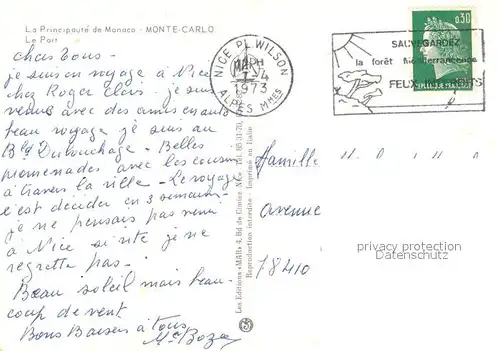 La Principauté de Monaco - MONTE-CARLO
Le Port
chers Tous -
je suis en voyage à Nice
chez Roger je suis
venue avec des amis en auto
beau voyage je suis au
Bld Dubouchage - Belles
promenades avec les cousins
à travers la ville - Le voyage
c'est décider en 3 semaines
je ne pensais pas venir
à Nice si vite je ne
regrette pas -
Beau soleil mais beau-
coup de vent.
Bons Baisers à tous
NICE PL. WILSON
7-4
1973
ALPES MMES
SAUVEGARDEZ
la forêt méditerranéenne
FEUX
0,30
Les Editions «MAR» 4, Bd de Cimiez, Nice - Tél. 85-31-70
Reproduction interdite - Imprimé en Italie
Famille
Avenue
78410
privacy protection
Datenschutz